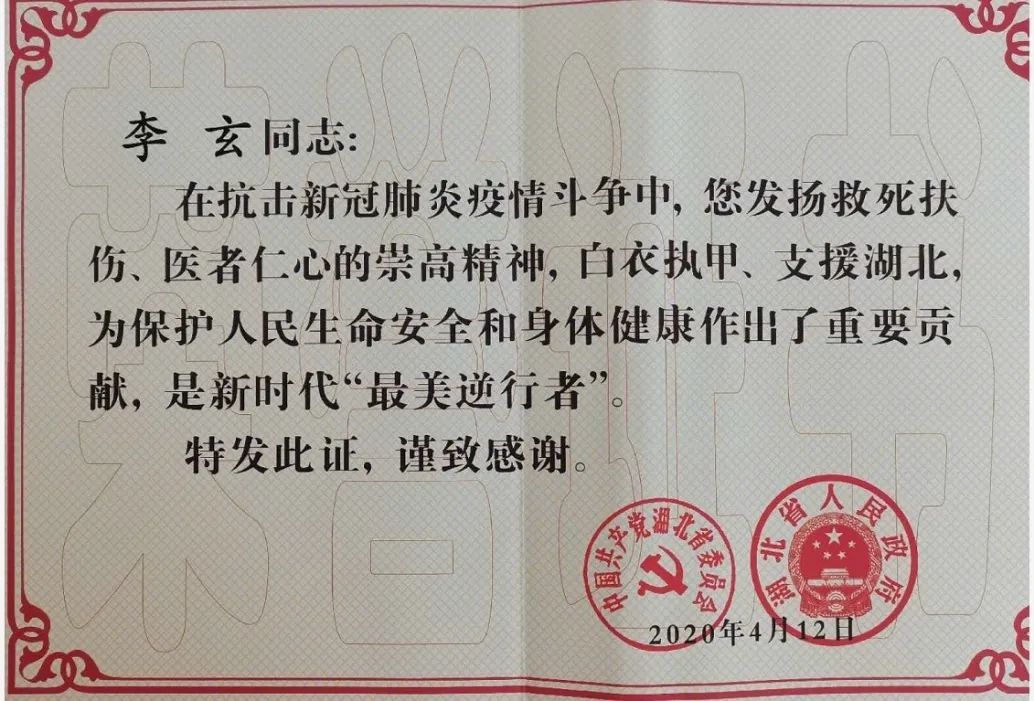 李 玄同志：
在抗击新冠肺炎疫情斗争中，您发扬救死扶
伤、医者仁心的崇高精神，白衣执甲、支援湖北，
为保护人民生命安全和身体健康作出了重要贡
献，是新时代“最美逆行者”。
特发此证，谨致感谢。
中国共产党湖北省委员会
湖北省人民政府
2020年4月12日